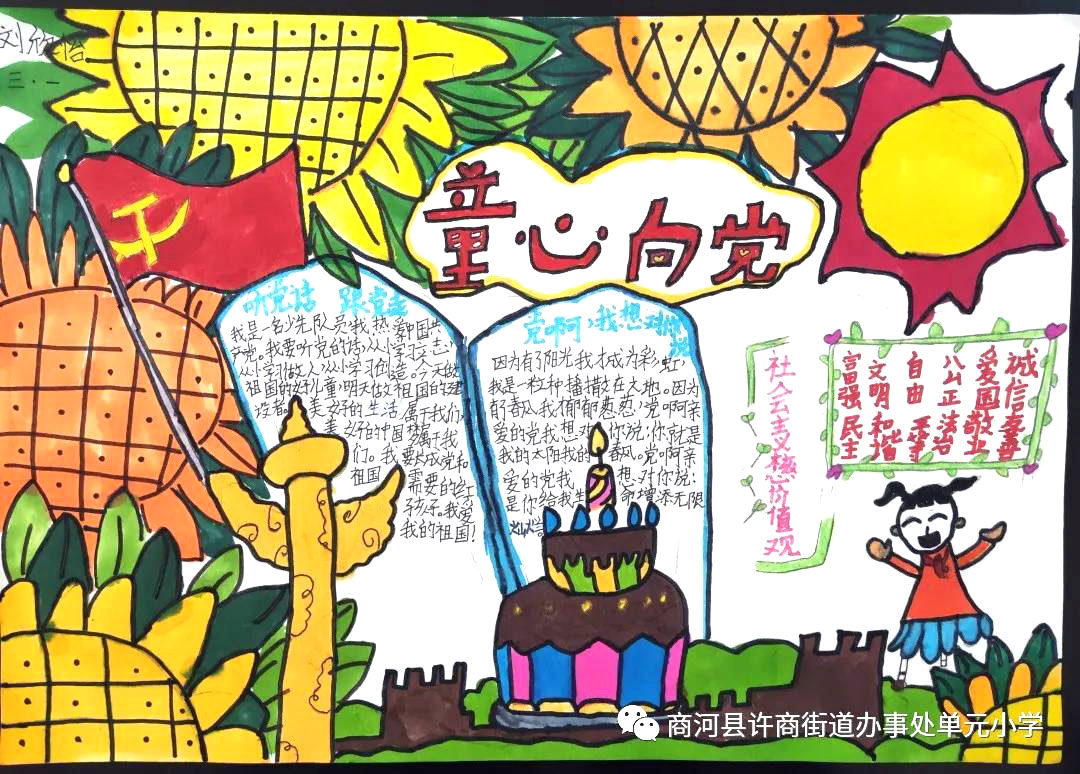 刘欣悟
三·一
童心向党
听党话 跟党走
我是一名少先队员我热爱中国共
产党。我要听党的话从小学习立志,
从小学习做人,从小学习创造。今天做
祖国的好儿童,明天做祖国的建
设者。美好的生活属于我们,
美好的中国梦
属于我
们。我要做党和
祖国需要的好
孩子。我爱
我的祖国!
党啊,我想对你说
因为有了阳光我才成为彩虹,
我是一粒种播撒在大地。因为
有春风我郁郁葱葱,党啊亲
爱的党我想对你说:你就是
我的太阳我的春风。党啊亲
爱的党我想对你说:
是你给我生命增添无限
社会主义核心价值观
富强 民主
文明 和谐
自由 平等
公正 法治
爱国 敬业
诚信 友善
商河县许商街道办事处单元小学